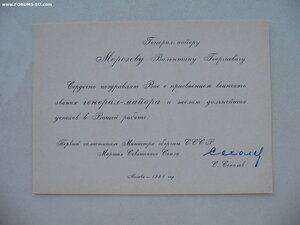 www.FORUMS-SU.com
Генерал-майору
Морозову Валентину Георгиевичу
Сердечно поздравляю Вас с присвоением воинского
звания генерал-майора и желаю дальнейших
успехов в Вашей работе.
Первый заместитель Министра обороны СССР
Маршал Советского Союза
С. Соколов
Москва — 1981 год